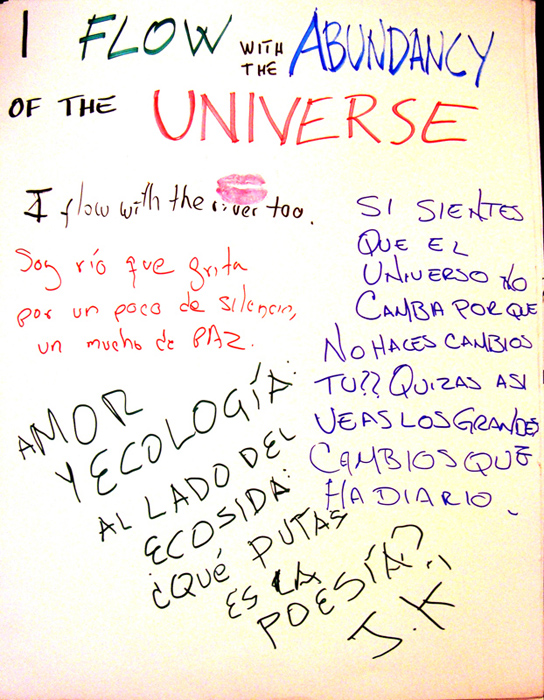 I FLOW WITH THE ABUNDANCY
OF THE UNIVERSE
I flow with the river too.
Soy río que grita
por un poco de silencio,
un mucho de PAZ.
SI SIENTES
QUE EL
UNIVERSO NO
CAMBA POR QUE
NO HACES CAMBIOS
TU?? QUIZAS ASI
VEAS LOS GRANDES
CAMBIOS QUE
HA DIARIO.
AMOR
Y ECOLOGÍA:
AL LADO DEL
ECOSIDA:
¿QUÉ PUTAS
ES LA
POESÍA?
J.K